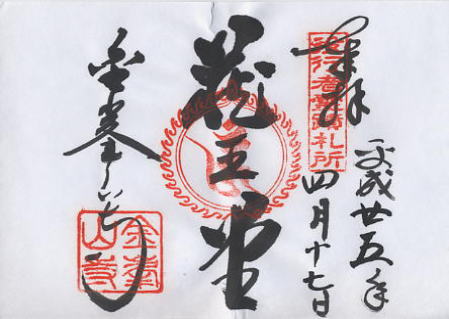 奉拝
役行者霊蹟札所
平成廿五年
四月十七日
蔵王堂
金峯山寺
金峯
山寺